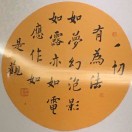 一切
有為法
如夢幻泡影
如露亦如電
應作如
是觀